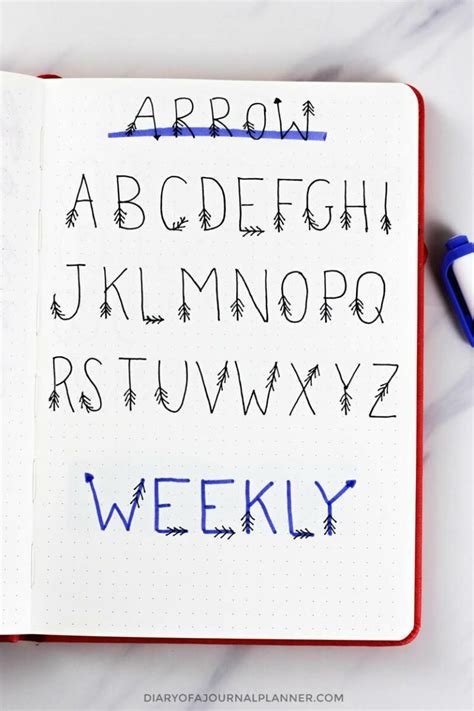 ARROW
ABCDEFGHI
JKLMNOPQ
RSTUVWXYZ
WEEKLY
DIARYOFAJOURNALPLANNER.COM